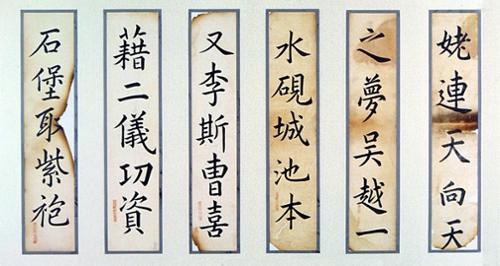 姥連天向天
之夢吴越一
水硯城池本
又李斯曺喜
藉二儀㓛資
石堡取紫袍